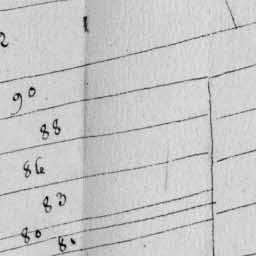 2
90
88
86
83
80
80